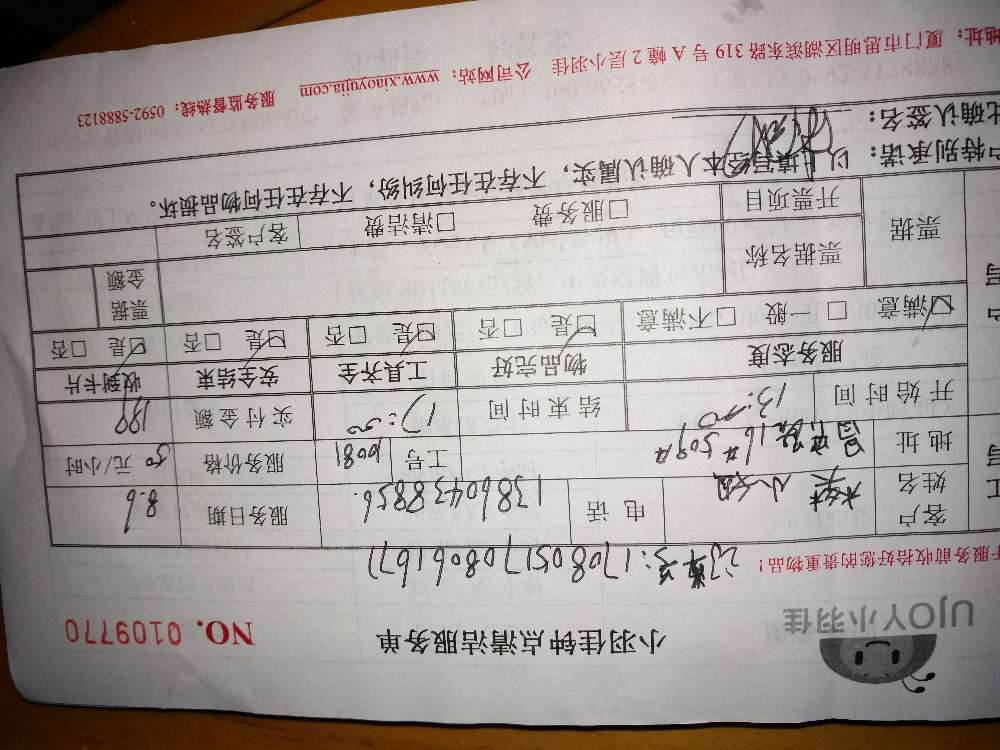 UJOY小羽佳
小羽佳钟点清洁服务单
NO. 0109770
服务前收拾好您的贵重物品!
订单号:1708051708061677
客户姓名 林小姐 电话 13860438856 服务日期 8.6
地址 16#509# 工号 10081 服务价格 50 元/小时
开始时间 13:50 结束时间 17:50 实付金额
服务态度 物品完好 工具齐全 安全结束 收到卡片
☑满意 □一般 □不满意 ☑是 □否 ☑是 □否 ☑是 □否 ☑是 □否
票据 票据名称 票据金额
开票项目 □服务费 □清洁费 客户签名
户特别承诺: 以上填写经本人确认属实,不存在任何纠纷,不存在任何物品损坏。
此确认签名:
地址: 厦门市思明区湖滨东路 319 号 A 幢 2 层小羽佳 公司网站: www.xiaoyujia.com 服务监督热线: 0592-5888123